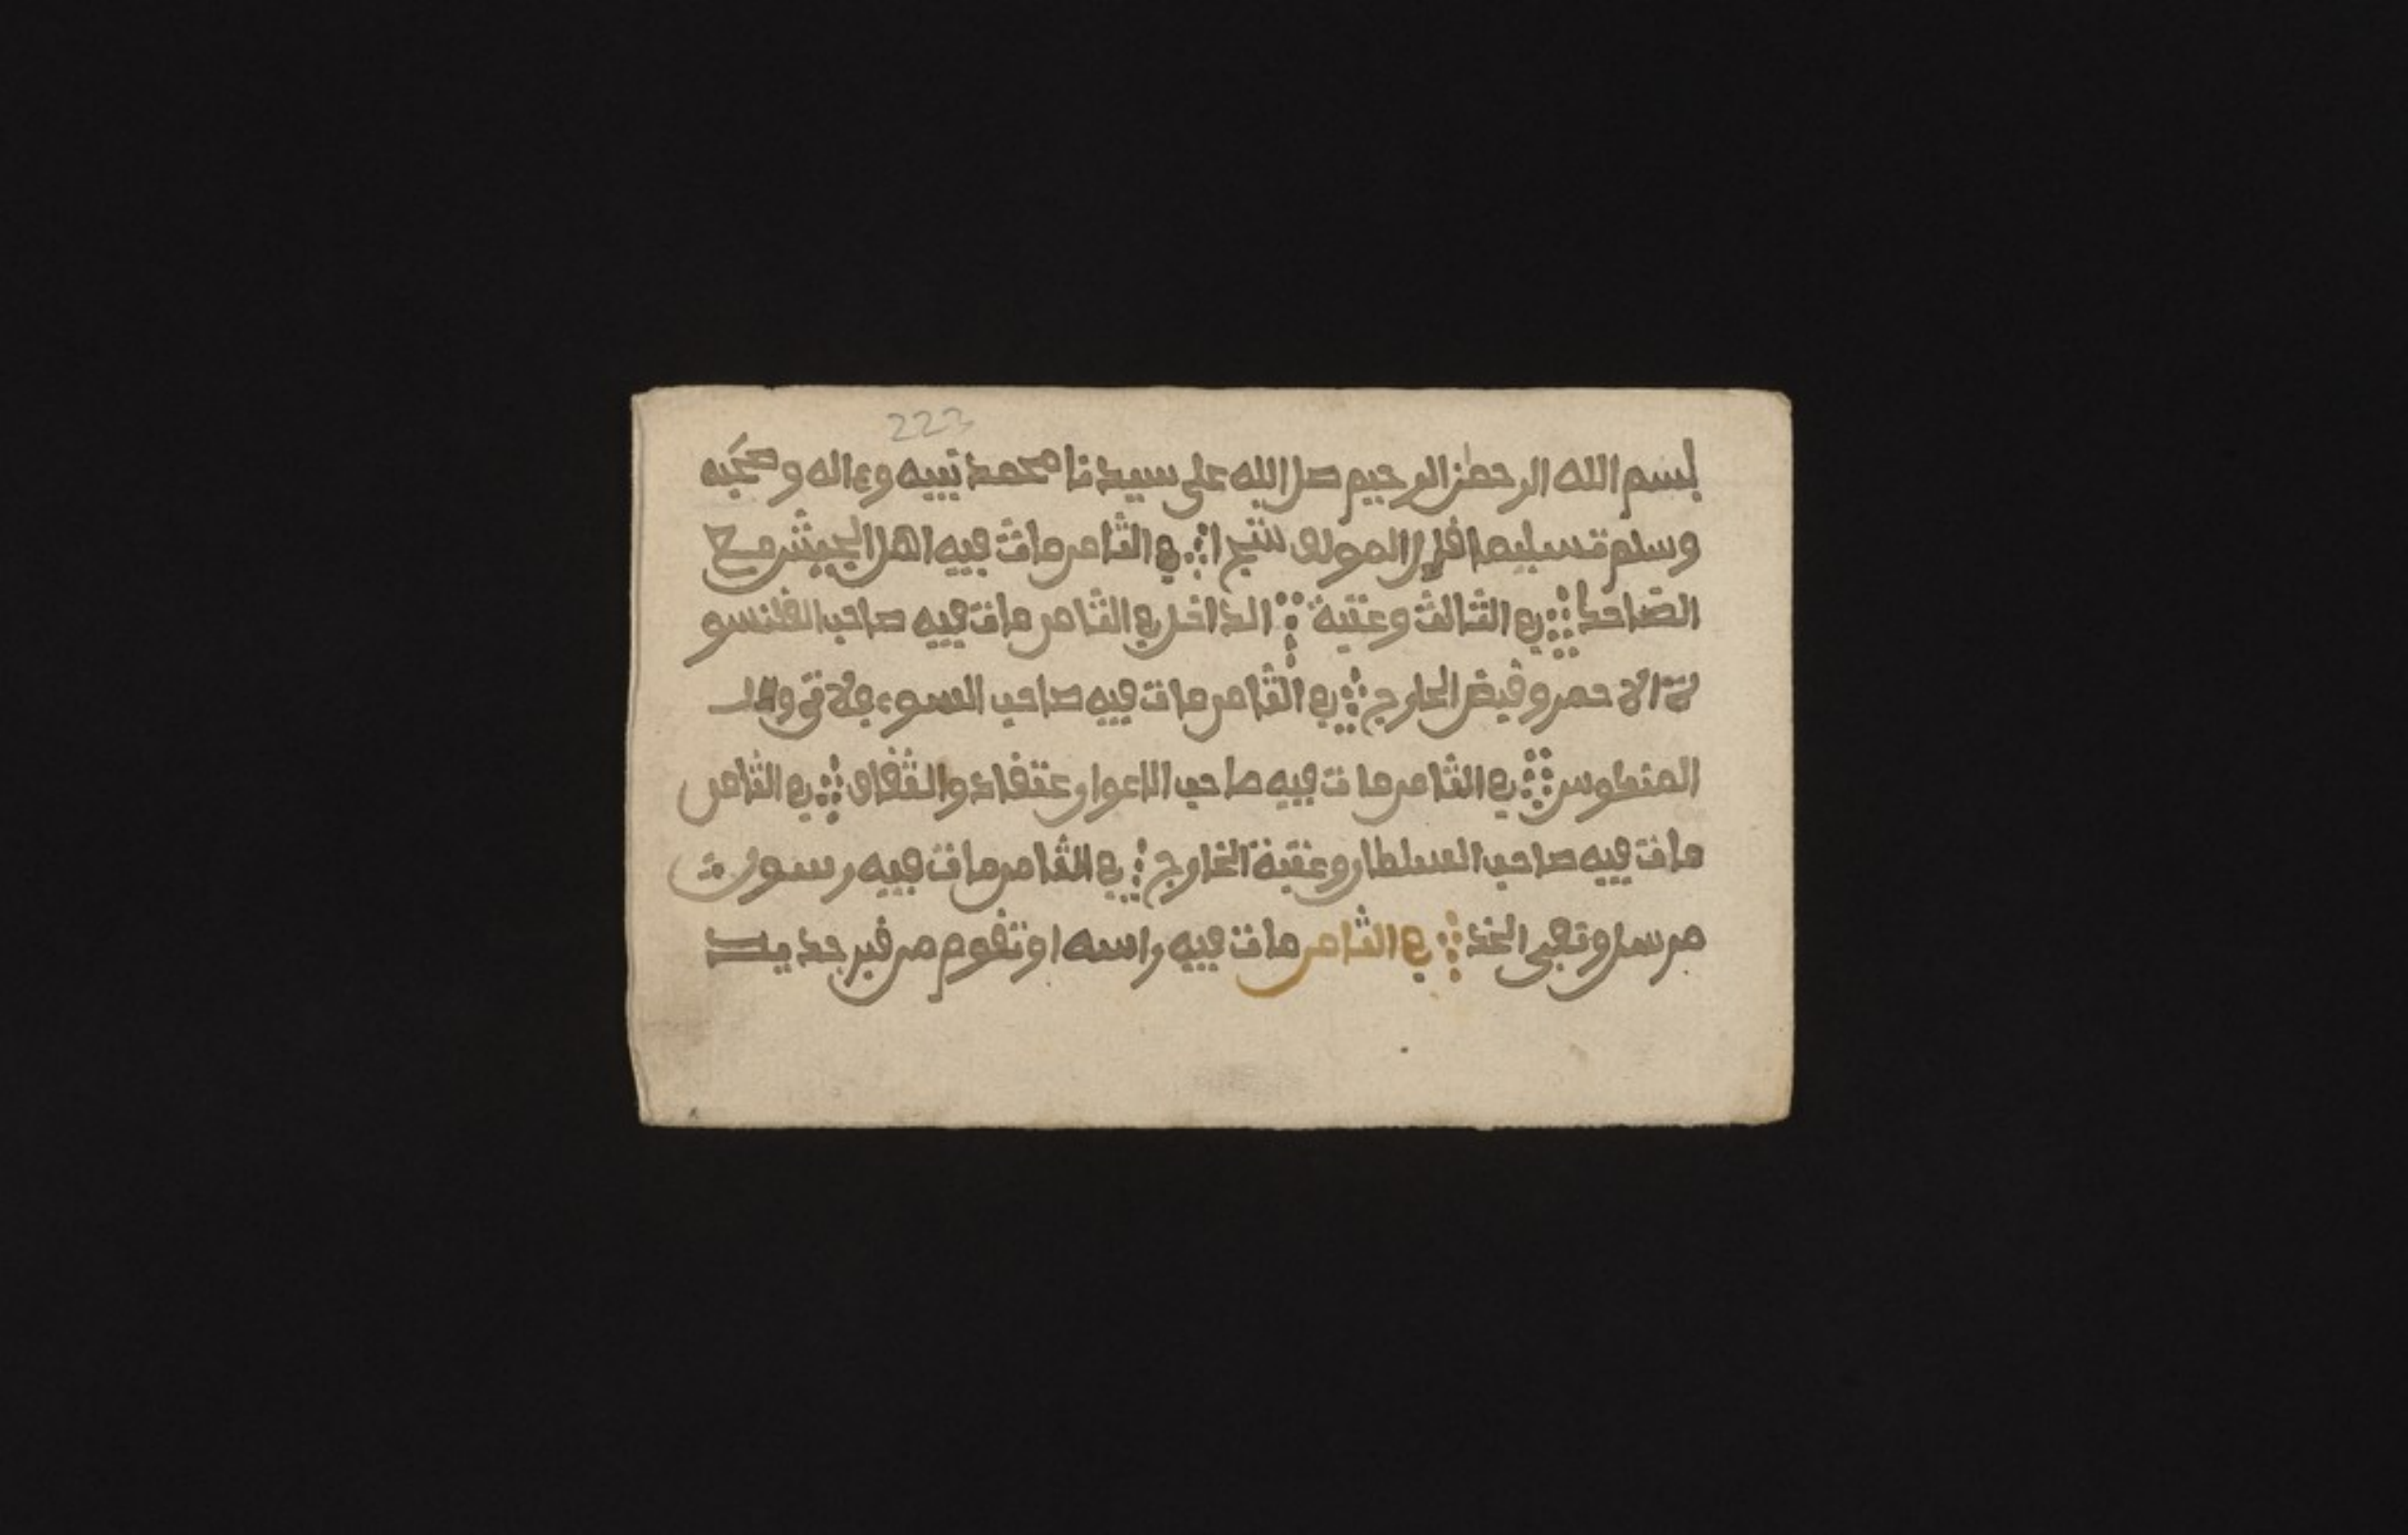 223
بسم الله الرحمن الرحيم صل الله على سيدنا محمد نبيه وءاله وصحبه
وسلم تسليما في الثامن مات فيه اهل الجيش مع
الضاحك في الثالث وعتبة الداخل في الثامن مات فيه صاحب القلنسو
لة الاحمر وقبض الخارج في الثامن مات فيه صاحب السوء
المنطوس في الثامن مات فيه صاحب والثقاف في الثامن
مات فيه صاحب السلطان وعتبة الخارج في الثامن مات فيه رسول
من سل ونقي الخد في الثامن مات فيه راسه او تقوم من قبر جديد